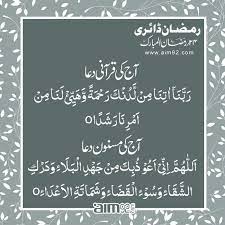 رمضان ڈائری
۲۳ رمضان المبارک
www.aim92.com
آج کی قرآنی دعا
رَبَّنَا اٰتِنَا مِنْ لَّدُنْكَ رَحْمَةً وَّهَيِّئْ لَنَا مِنْ
اَمْرِنَا رَشَدًا
آج کی مسنون دعا
اَللّٰهُمَّ اِنِّيْ اَعُوْذُبِكَ مِنْ جَهْدِ الْبَلَاءِ وَدَرَكِ
الشَّقَاءِ وَسُوْءِ الْقَضَاءِ وَشَمَاتَةِ الْاَعْدَاءِ
aim92